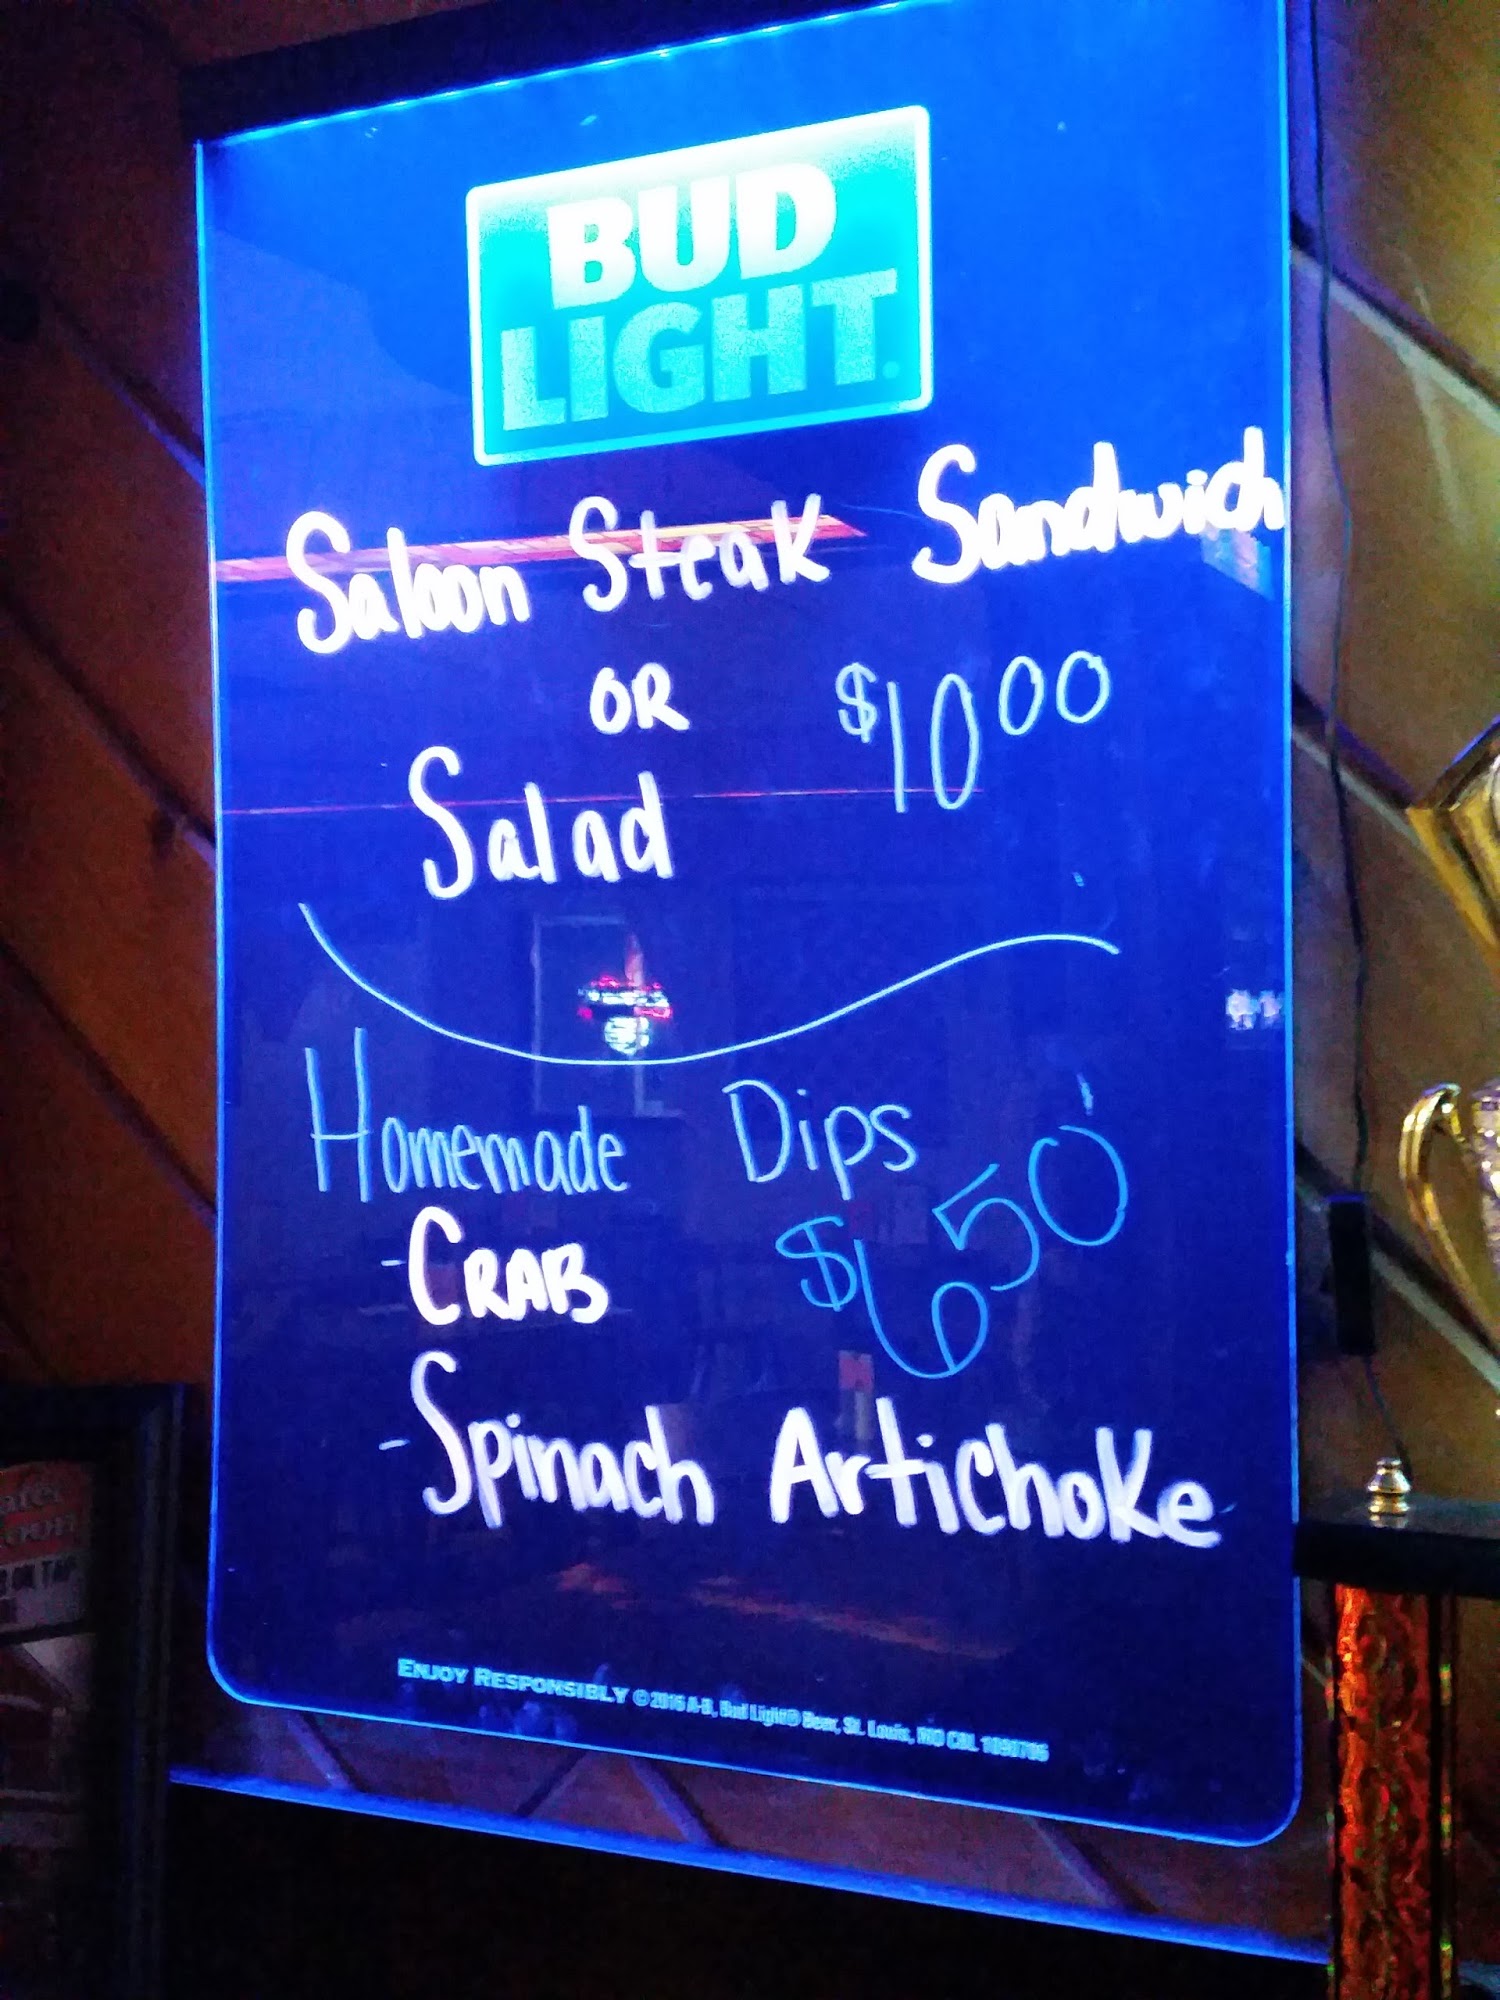 BUD
LIGHT.
Saloon Steak Sandwich
OR
$10 00
Salad
Homemade Dips
- CRAB
$6 50
- Spinach Artichoke
ENJOY RESPONSIBLY © 2016 A-B, Bud Light® Beer, St. Louis, MO
ON TAP